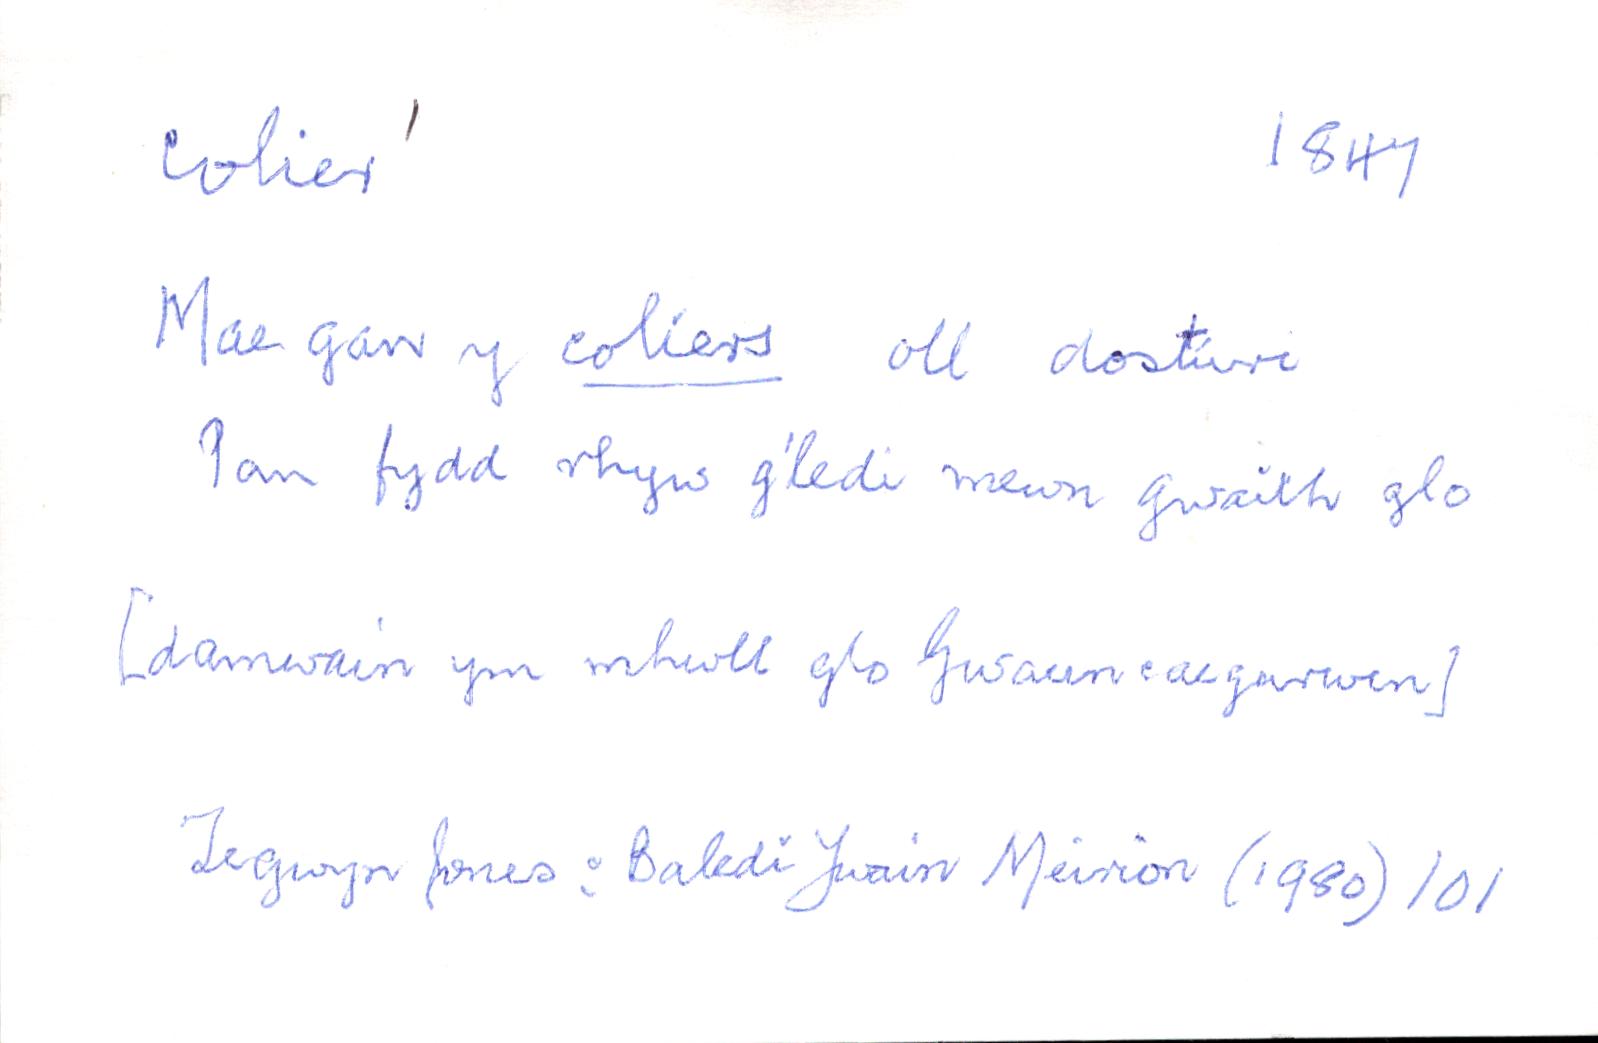 colier' 1847
Mae gan y coliers oll dosturi
Pan fydd rhyw g'ledi mewn gwaith glo
[damwain ym mhwll glo Gwauncaegurwen]
Tegwyn Jones : Baledi Ywain Meirion (1980) 101